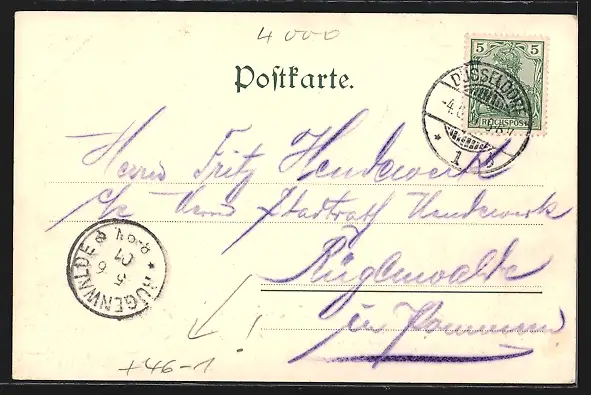 4000
5 5
REICHSPOST
Postkarte.
DÜSSELDORF
-4.
* 1
Herrn Fritz Hendewerk
c/o Herrn Stadtrath Hendewerk
Rügenwalde
in Pommern
RÜGENWALDE *
5
6
01
8-9V.
+46-1 !